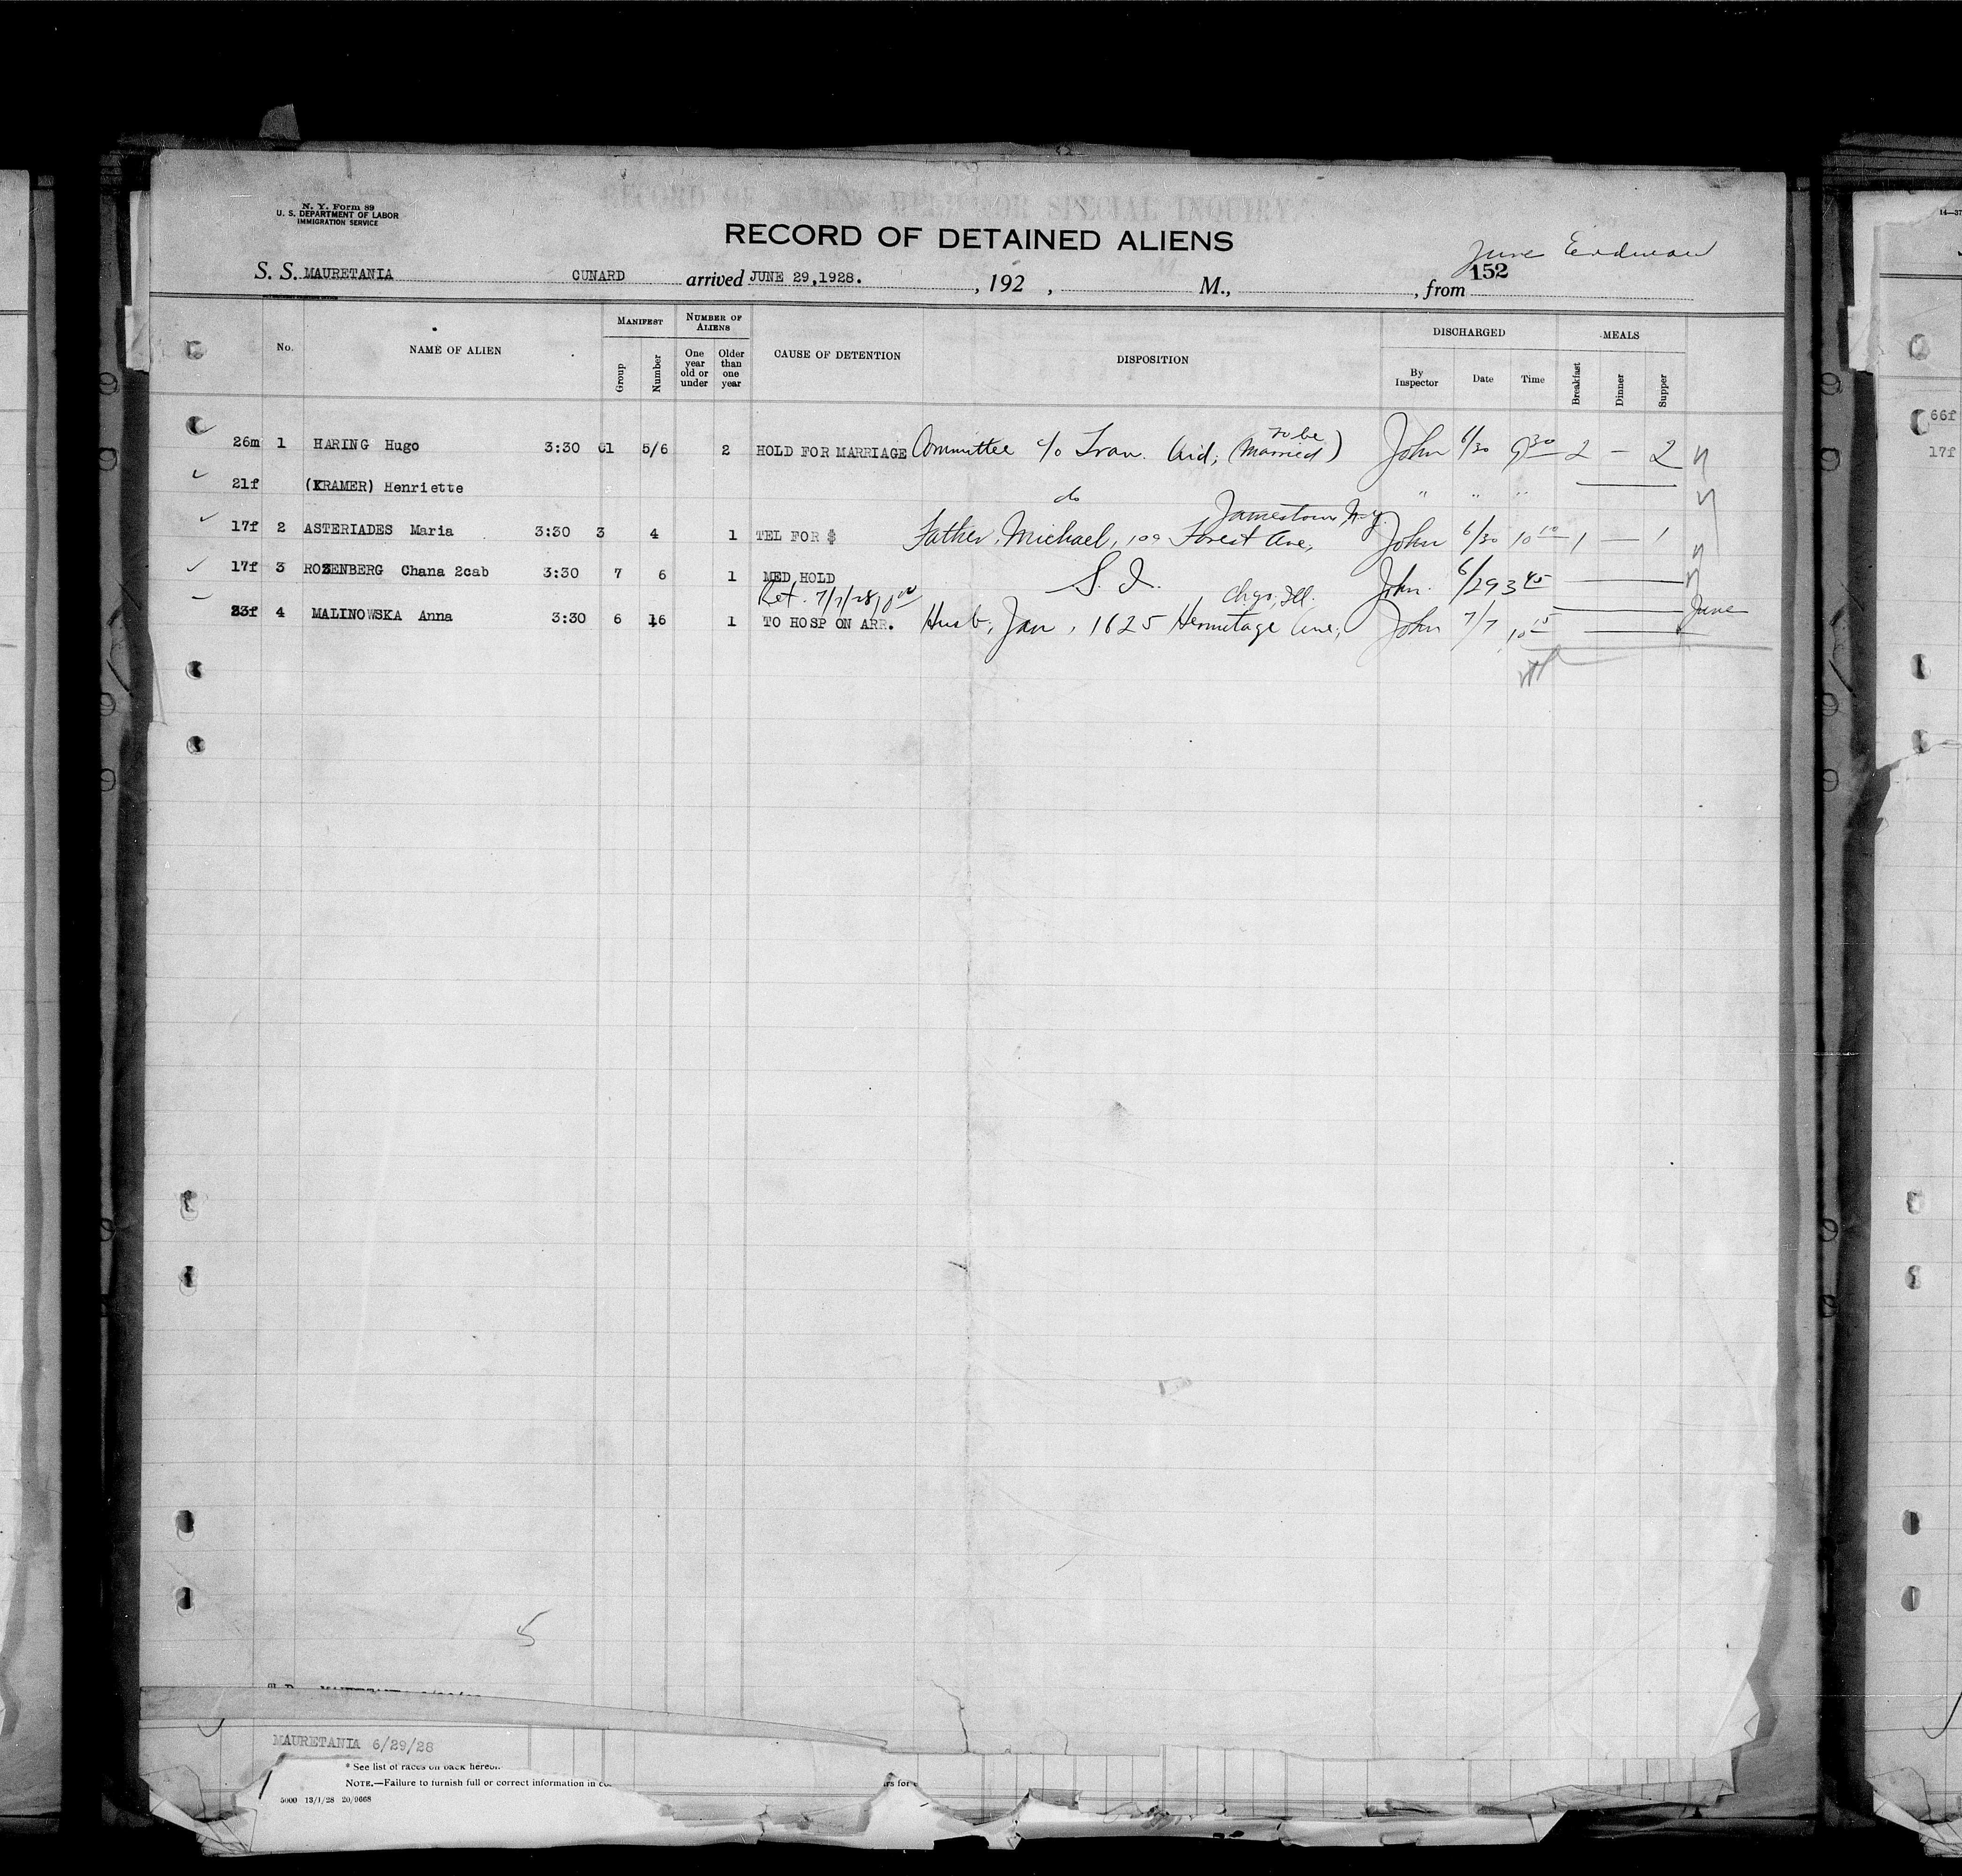 N. Y. Form 89
U. S. DEPARTMENT OF LABOR
IMMIGRATION SERVICE
RECORD OF DETAINED ALIENS
June Erdman
S. S. MAURETANIA CUNARD arrived JUNE 29, 1928. , 192 , M., , from 152
MANIFEST NUMBER OF ALIENS DISCHARGED MEALS
No. NAME OF ALIEN Group Number One year old or under Older than one year CAUSE OF DETENTION DISPOSITION By Inspector Date Time Breakfast Dinner Supper
26m 1 HARING Hugo 3:30 61 5/6 2 HOLD FOR MARRIAGE Committee c/o Trav. Aid, (to be married) John 6/30 9 30 2 – 2
21f (KRAMER) Henriette do " " "
17f 2 ASTERIADES Maria 3:30 3 4 1 TEL FOR $ Father, Michael, 109 Forest Ave, Jamestown N.Y. John 6/30 10 10 1 — 1
17f 3 ROSENBERG Chana 2cab 3:30 7 6 1 MED HOLD S. I. John. 6/29 3 45
Ret. 7/7/28 10 00
23f 4 MALINOWSKA Anna 3:30 6 16 1 TO HOSP ON ARR. Husb, Jan, 1625 Hermitage Ave, Chgo, Ill. John 7/7 10 15 June
5
MAURETANIA 6/29/28
* See list of races on back hereo
NOTE.—Failure to furnish full or correct information in
5000 13/1/28 20/9668
14—37
66f
17f